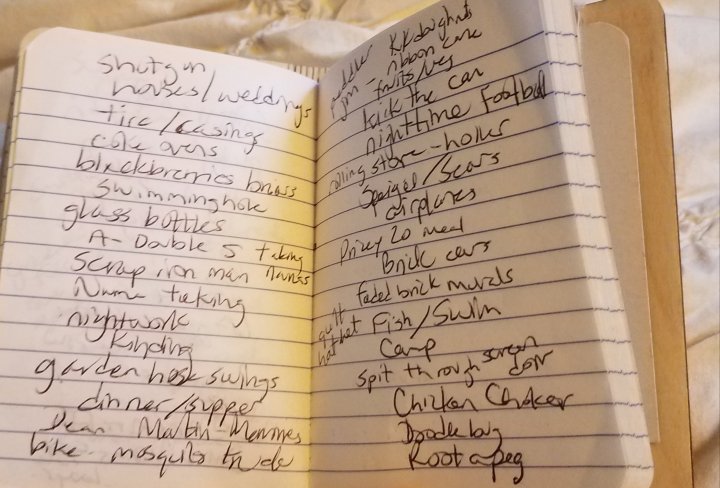 shotgun
houses/weddings
tire/casings
coke ovens
blackberries briars
swimminghole
glass bottles
A-Double S taking
Scrap iron man names
Name taking
nightwork
Kinding
garden hose swings
dinner/supper
Dean Martin-Memories
bike - mosquito truck
peddler KK doughnuts
ribbon cane
fruits/veg
kick the can
nighttime football
rolling store-holler
Speigel/Sears
airplanes
20 meal
brick cars
faded brick murals
quilt
hot bet Fish/Swim
Camp
spit through screen
door
Chicken Choker
Doodlebug
Root a peg